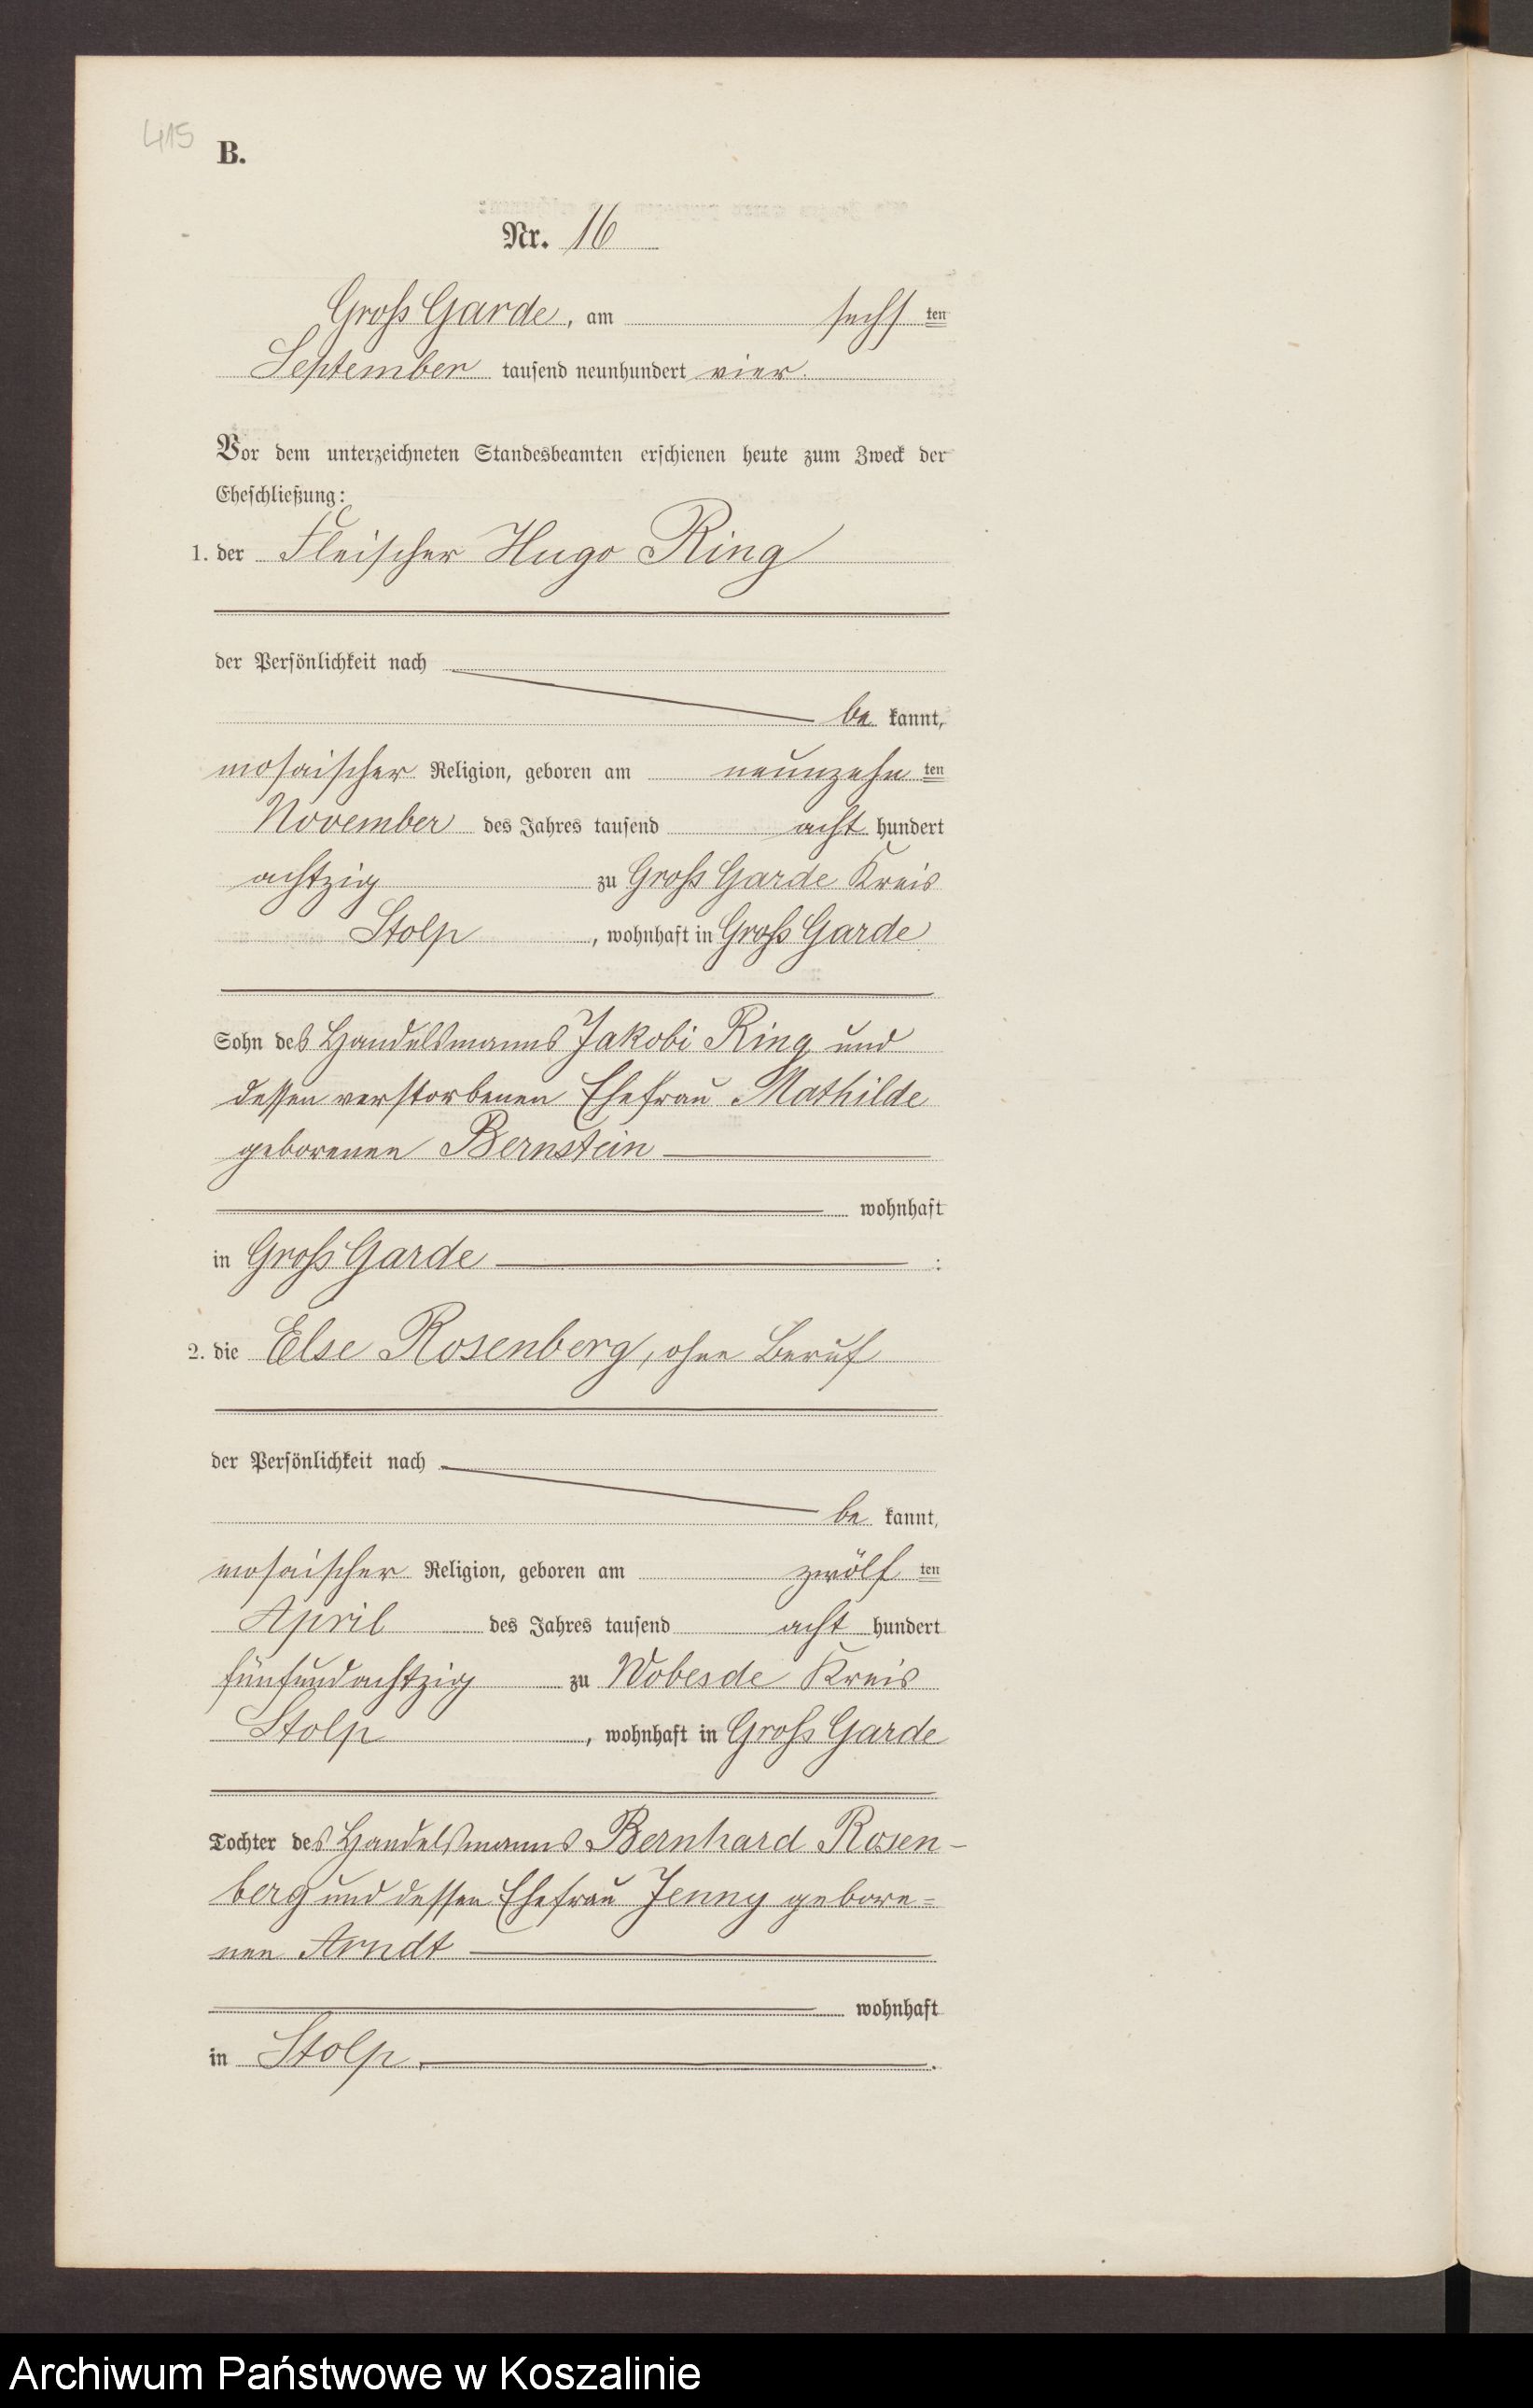 415
B.
Nr. 16
Gross Garde, am sechsten
September tausend neunhundert vier.
Vor dem unterzeichneten Standesbeamten erschienen heute zum Zweck der
Eheschließung:
1. der Fleischer Hugo Ring
der Persönlichkeit nach
be kannt,
mosaischer Religion, geboren am neunzehn ten
November des Jahres tausend acht hundert
achtzig zu Gross Garde Kreis
Stolp, wohnhaft in Gross Garde
Sohn des Handelsmanns Jakobi Ring und
dessen verstorbenen Ehefrau Mathilde
geborenen Bernstein
wohnhaft
in Gross Garde :
2. die Else Rosenberg, ohne Beruf
der Persönlichkeit nach
be kannt,
mosaischer Religion, geboren am zwölf ten
April des Jahres tausend acht hundert
fünfundachtzig zu Wobesde Kreis
Stolp, wohnhaft in Gross Garde
Tochter des Handelsmanns Bernhard Rosen-
berg und dessen Ehefrau Jenny gebore=
nen Arndt
wohnhaft
in Stolp.
Archiwum Państwowe w Koszalinie